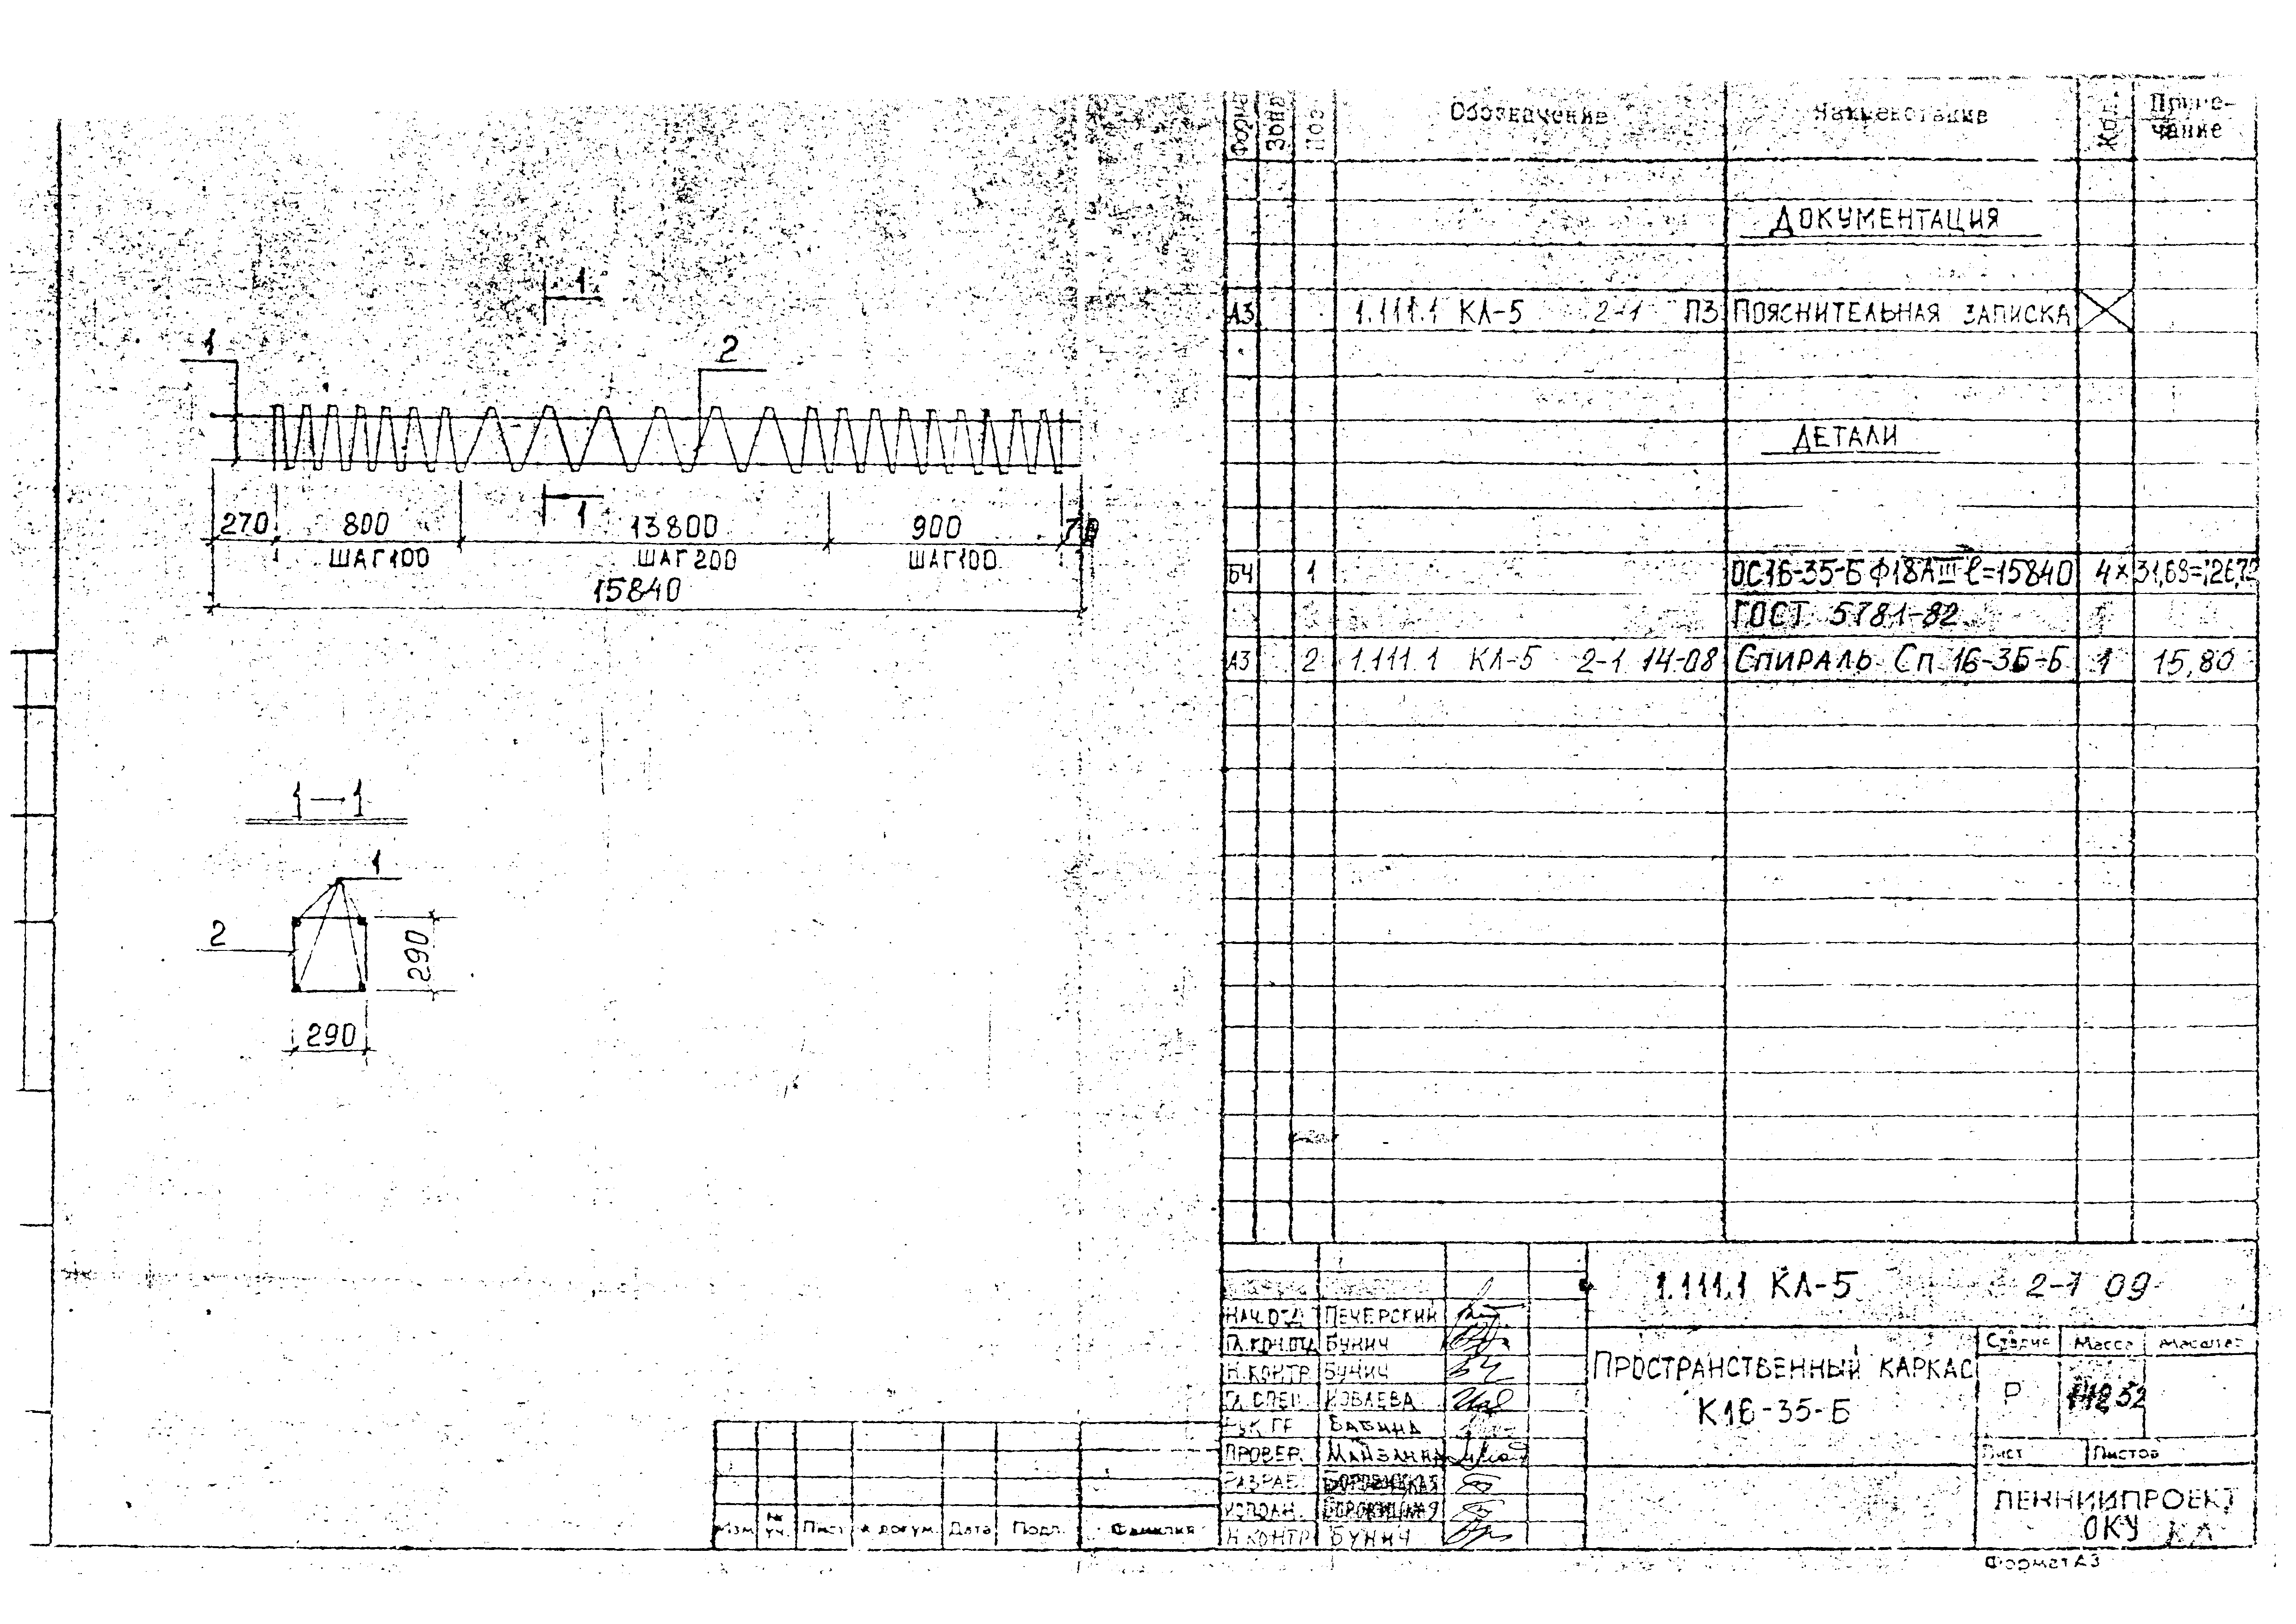 1
1
2
270
800
13800
900
70
1
ШАГ 100
ШАГ 200
ШАГ 100
15840
1—1
1
2
290
290
Формат
Зона
Поз
Обозначение
Наименование
Кол.
Приме-
чание
ДОКУМЕНТАЦИЯ
А3 1.111.1 КЛ-5 2-1 ПЗ ПОЯСНИТЕЛЬНАЯ ЗАПИСКА
ДЕТАЛИ
БЧ 1 ОС16-35-Б Ф18АIII ℓ=15840 4 × 31,68=126,72
ГОСТ 5781-82
А3 2 1.111.1 КЛ-5 2-1 14-08 СПИРАЛЬ Сп 16-35-Б 1 15,80
1.111.1 КЛ-5 2-1 09
НАЧ.ОТД ПЕЧЕРСКИЙ
ГЛ.КОН.ОТД БУНИЧ
Н.КОНТР БУНИЧ
ГЛ.СПЕЦ
РУК.ГР БАБИНА
ПРОВЕР.
РАЗРАБ.
ИСПОЛН.
Н.КОНТР БУНИЧ
ПРОСТРАНСТВЕННЫЙ КАРКАС
К16-35-Б
Стадия Масса Масштаб
Р 142,52
Лист Листов
ЛЕННИИПРОЕКТ
ОКУ КЛ
Изм № уч. Лист № докум. Дата Подп. Фамилия
Формат А3